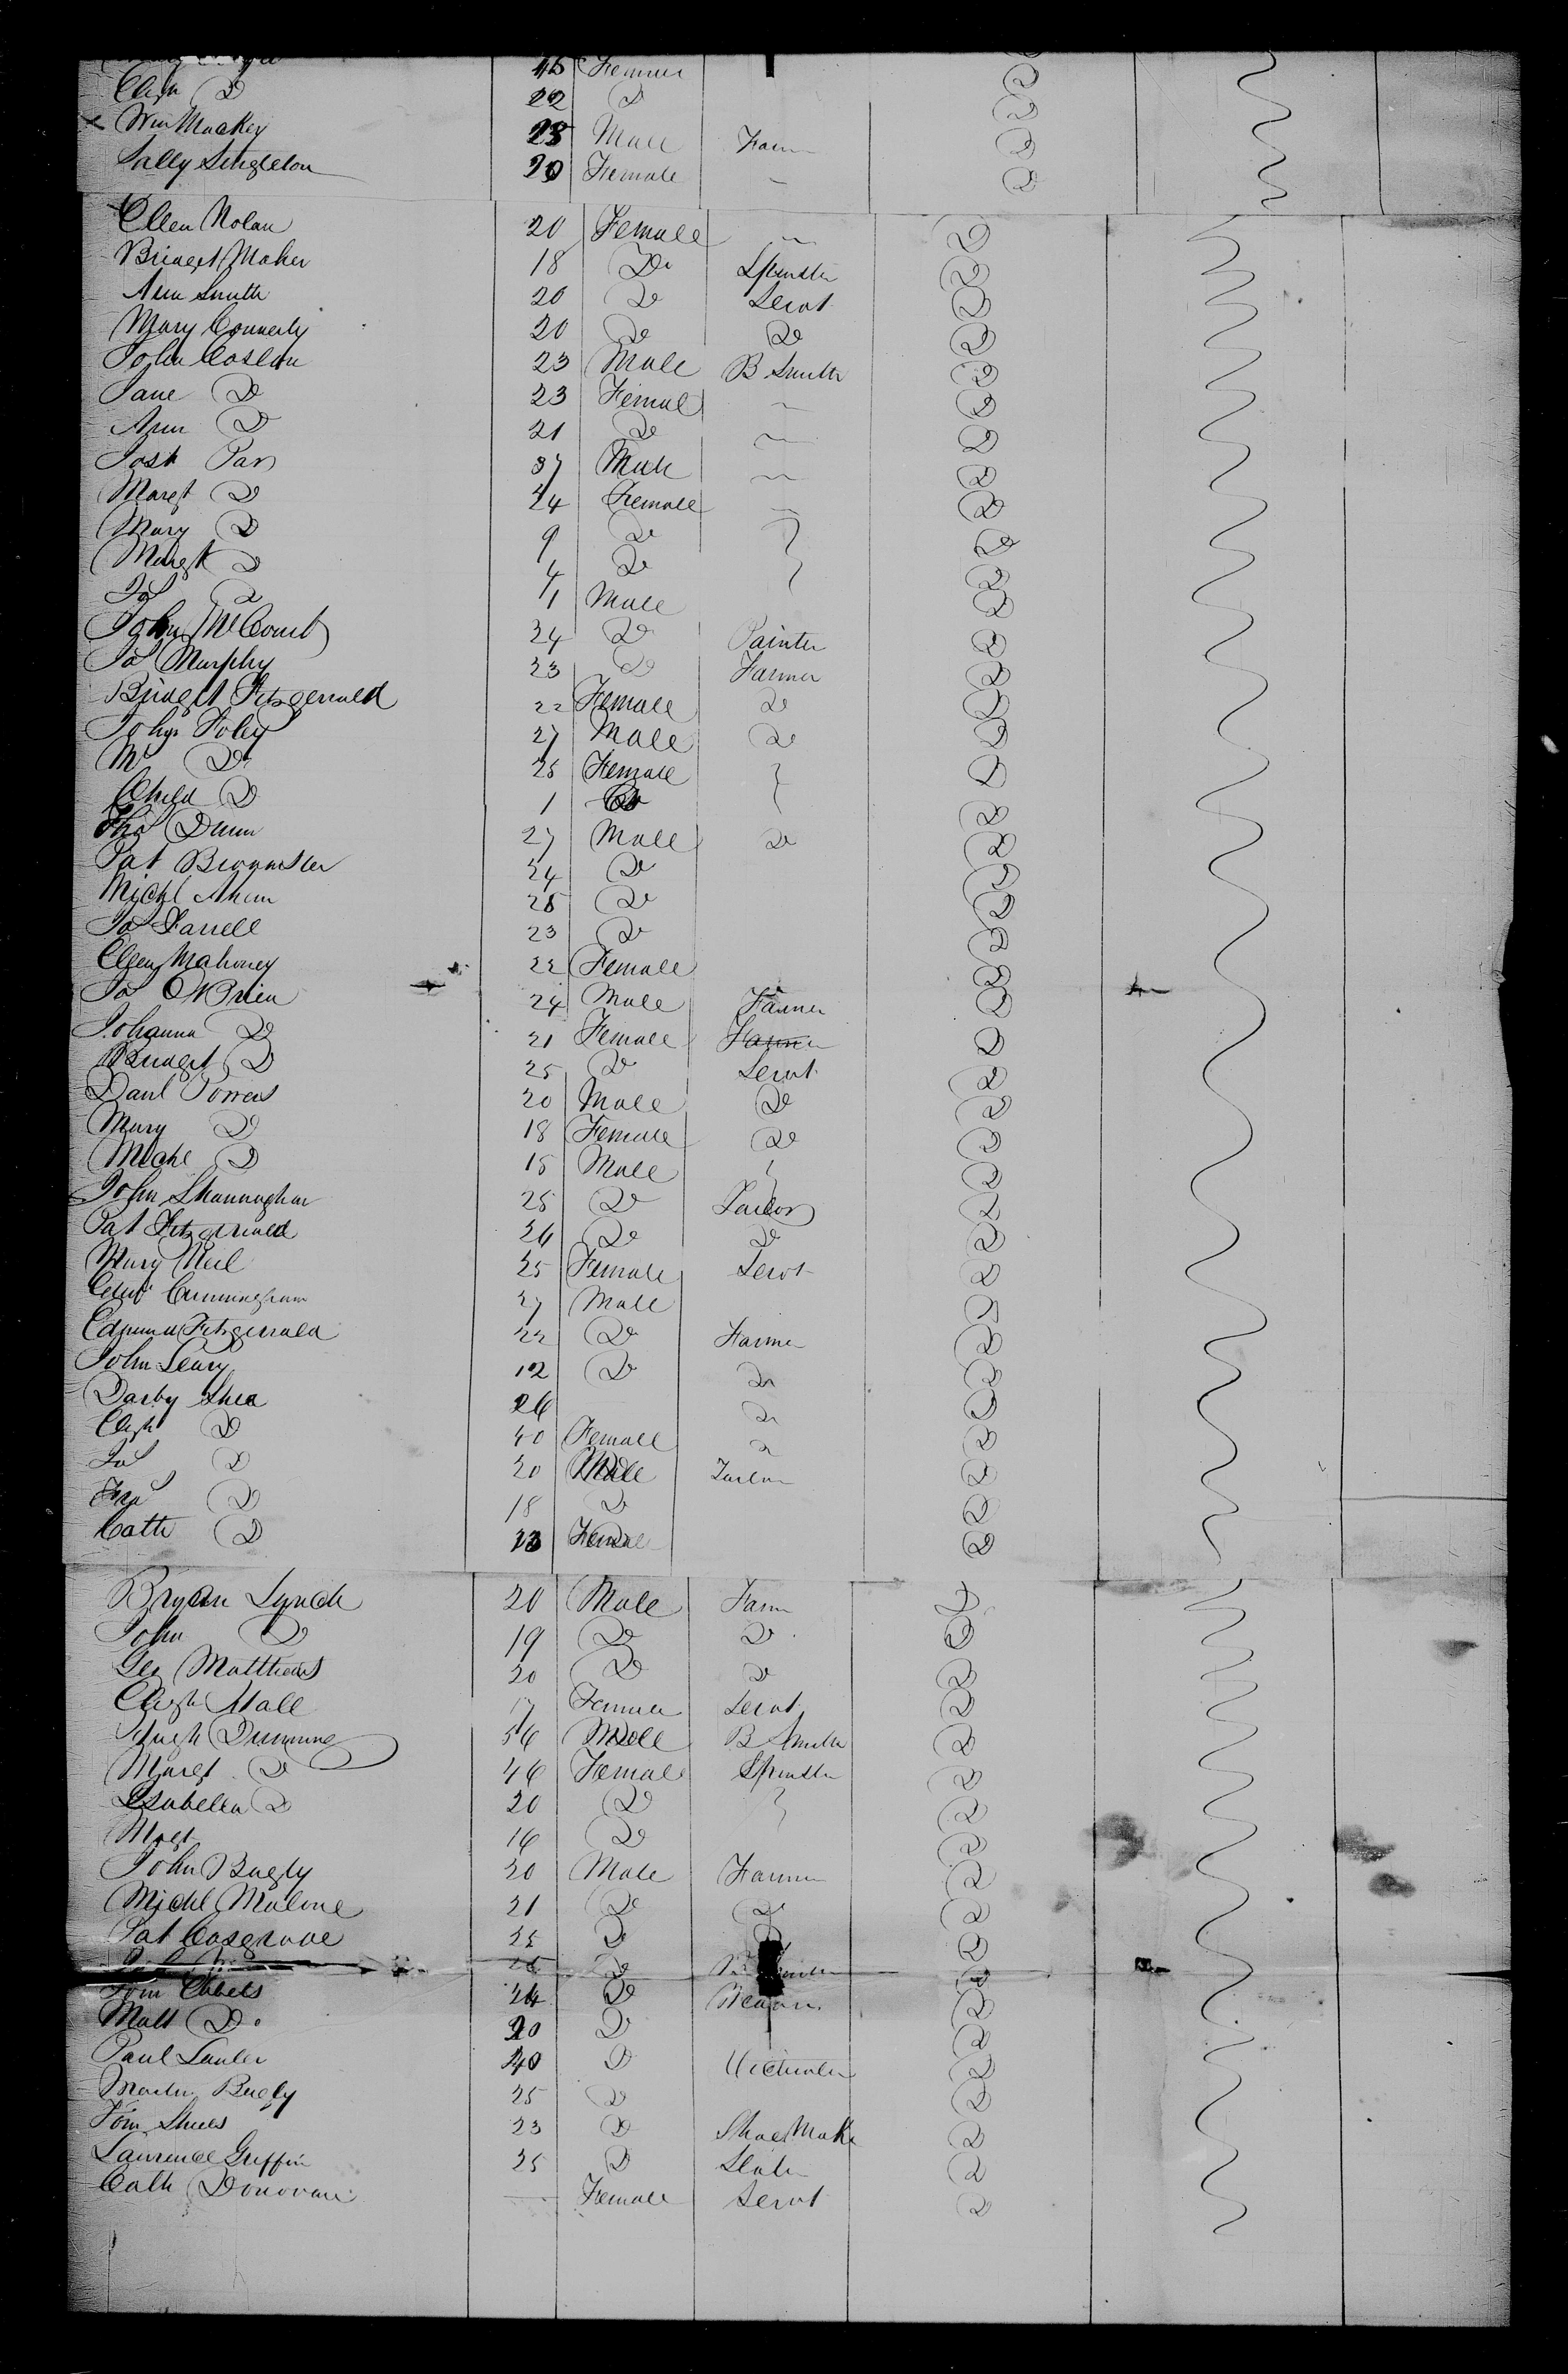 45 Female
Eliza Do 22 Do
Wm Mackey 25 Male Farm
Sally Singleton 20 Female
Ellen Nolan 20 Female
Bridget Maher 18 Do Spinster
Ann Smith 20 Do Servt
Mary Connerly 20 Do Do
John Coslan 23 Male B Smith
Jane Do 23 Female
Ann Do 21 Do
Josh Par 37 Male
Margt Do 24 Female
Mary Do 9 Do
Margt Do 4 Do
Jas Do 1 Male
John McCourt 24 Do Painter
Jas Murphy 23 Do Farmer
Bridget Fitzgerrald 22 Female Do
John Foley 27 Male Do
Mrs Do 25 Female
Child Do 1 Do
Thos Dunn 27 Male Do
Pat 24 Do
Michl Ahern 25 Do
Jas Farrell 23 Do
Ellen Mahoney 22 Female
Jas O'Brien 24 Male Farmer
Johanna Do 21 Female Farmer
Bridget Do 25 Do Servt
Danl Powers 20 Male Do
Mary Do 18 Female Do
Michl Do 15 Male
John Shannaghan 25 Do Tailor
Pat Fitzgerrald 26 Do Do
Mary Neil 25 Female Servt
Edwd Cunningham 27 Male
Edmund Fitzgerrald 22 Do Farmer
John Leary 12 Do Do
Darby Shea 26 Do
Eliza Do 40 Female Do
Jas Do 20 Male Tailor
Fra Do 18 Do
Cath Do 13 Female
Bryan Lynch 20 Male Farm
John Do 19 Do Do
Geo Matthews 20 Do Do
Eliza Hall 17 Female Servt
Hugh Dumming 56 Male B Smith
Margt Do 46 Female Spinster
Isabella Do 20 Do
Margt 16 Do
John Bagly 20 Male Farmer
Michl Malone 21 Do Do
Pat Cosgrove 25 Do Do
Do
Tom 24 Do Weaver
Matt Do 20 Do
Paul Lauler 40 Do Victualer
Martin Bagly 25 Do
Tom Shiels 23 Do Shoe Make
Laurence Griffin 25 Do Slater
Cath Donovan Female Servt